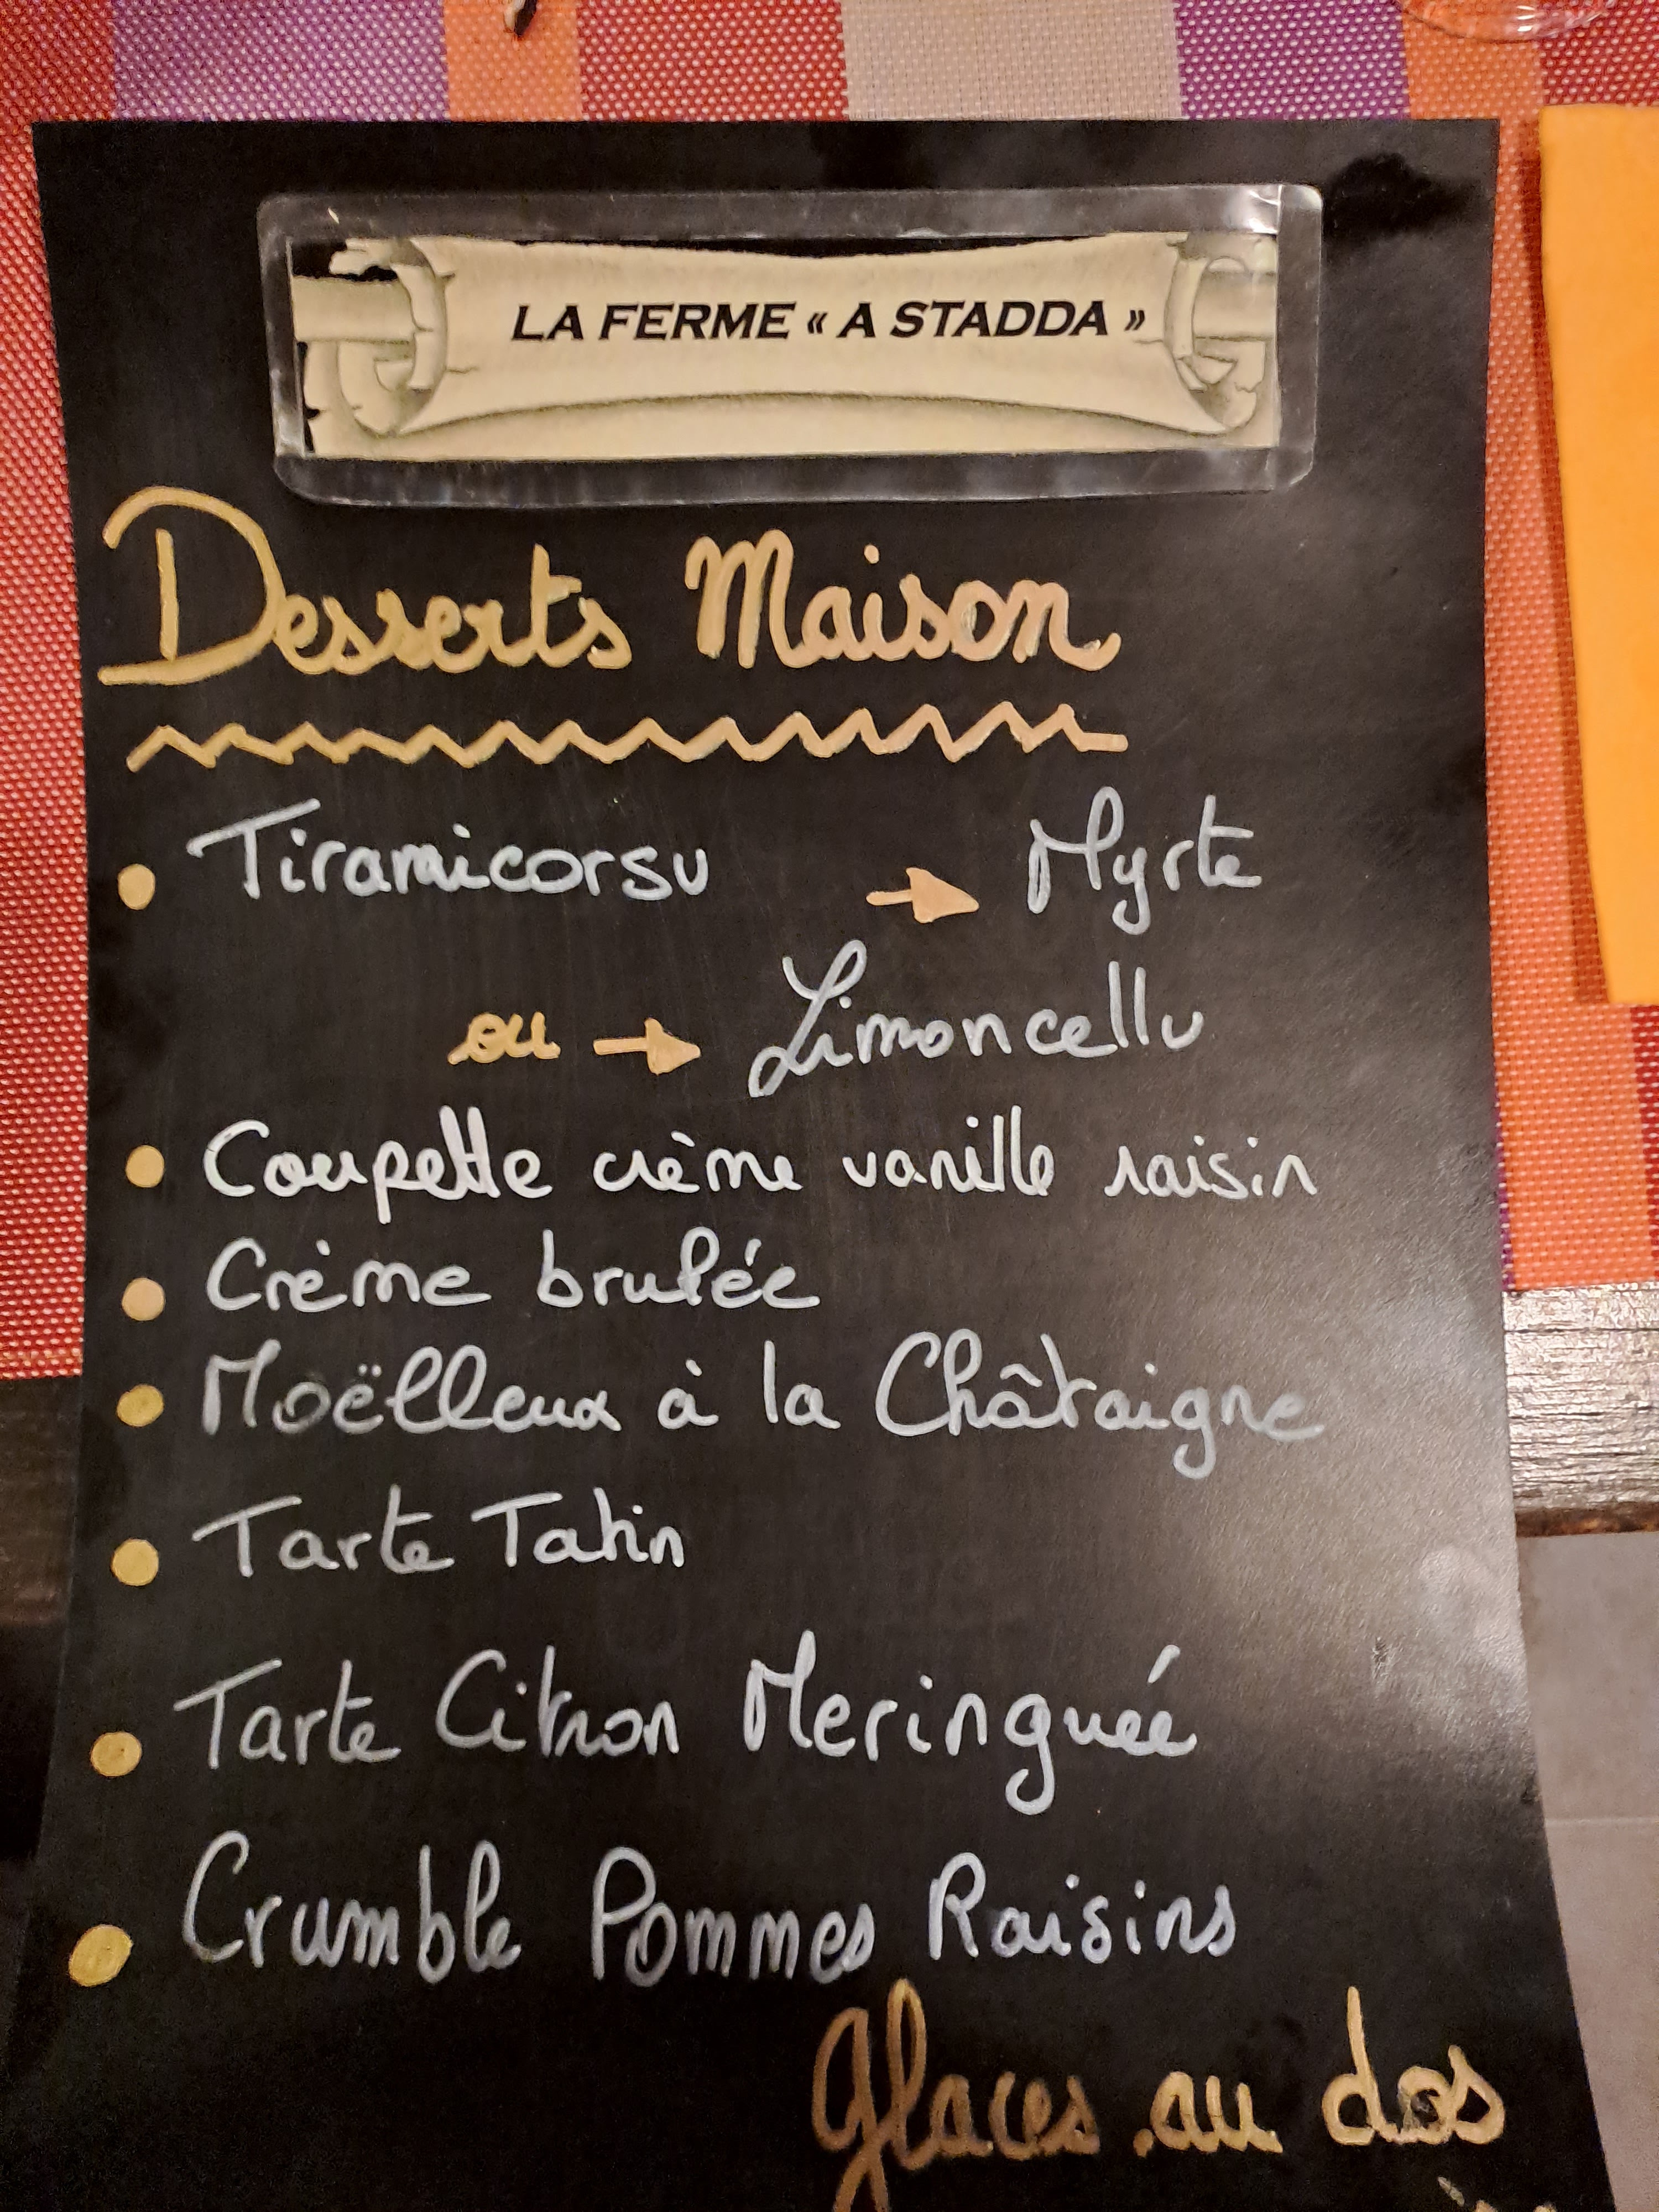 LA FERME « A STADDA »
Desserts Maison
Tiramicorsu → Myrte
ou → Limoncellu
Coupette crème vanille raisin
Crème brulée
Moëlleux à la Châtaigne
Tarte Tatin
Tarte Citron Meringuée
Crumble Pommes Raisins
glaces au dos